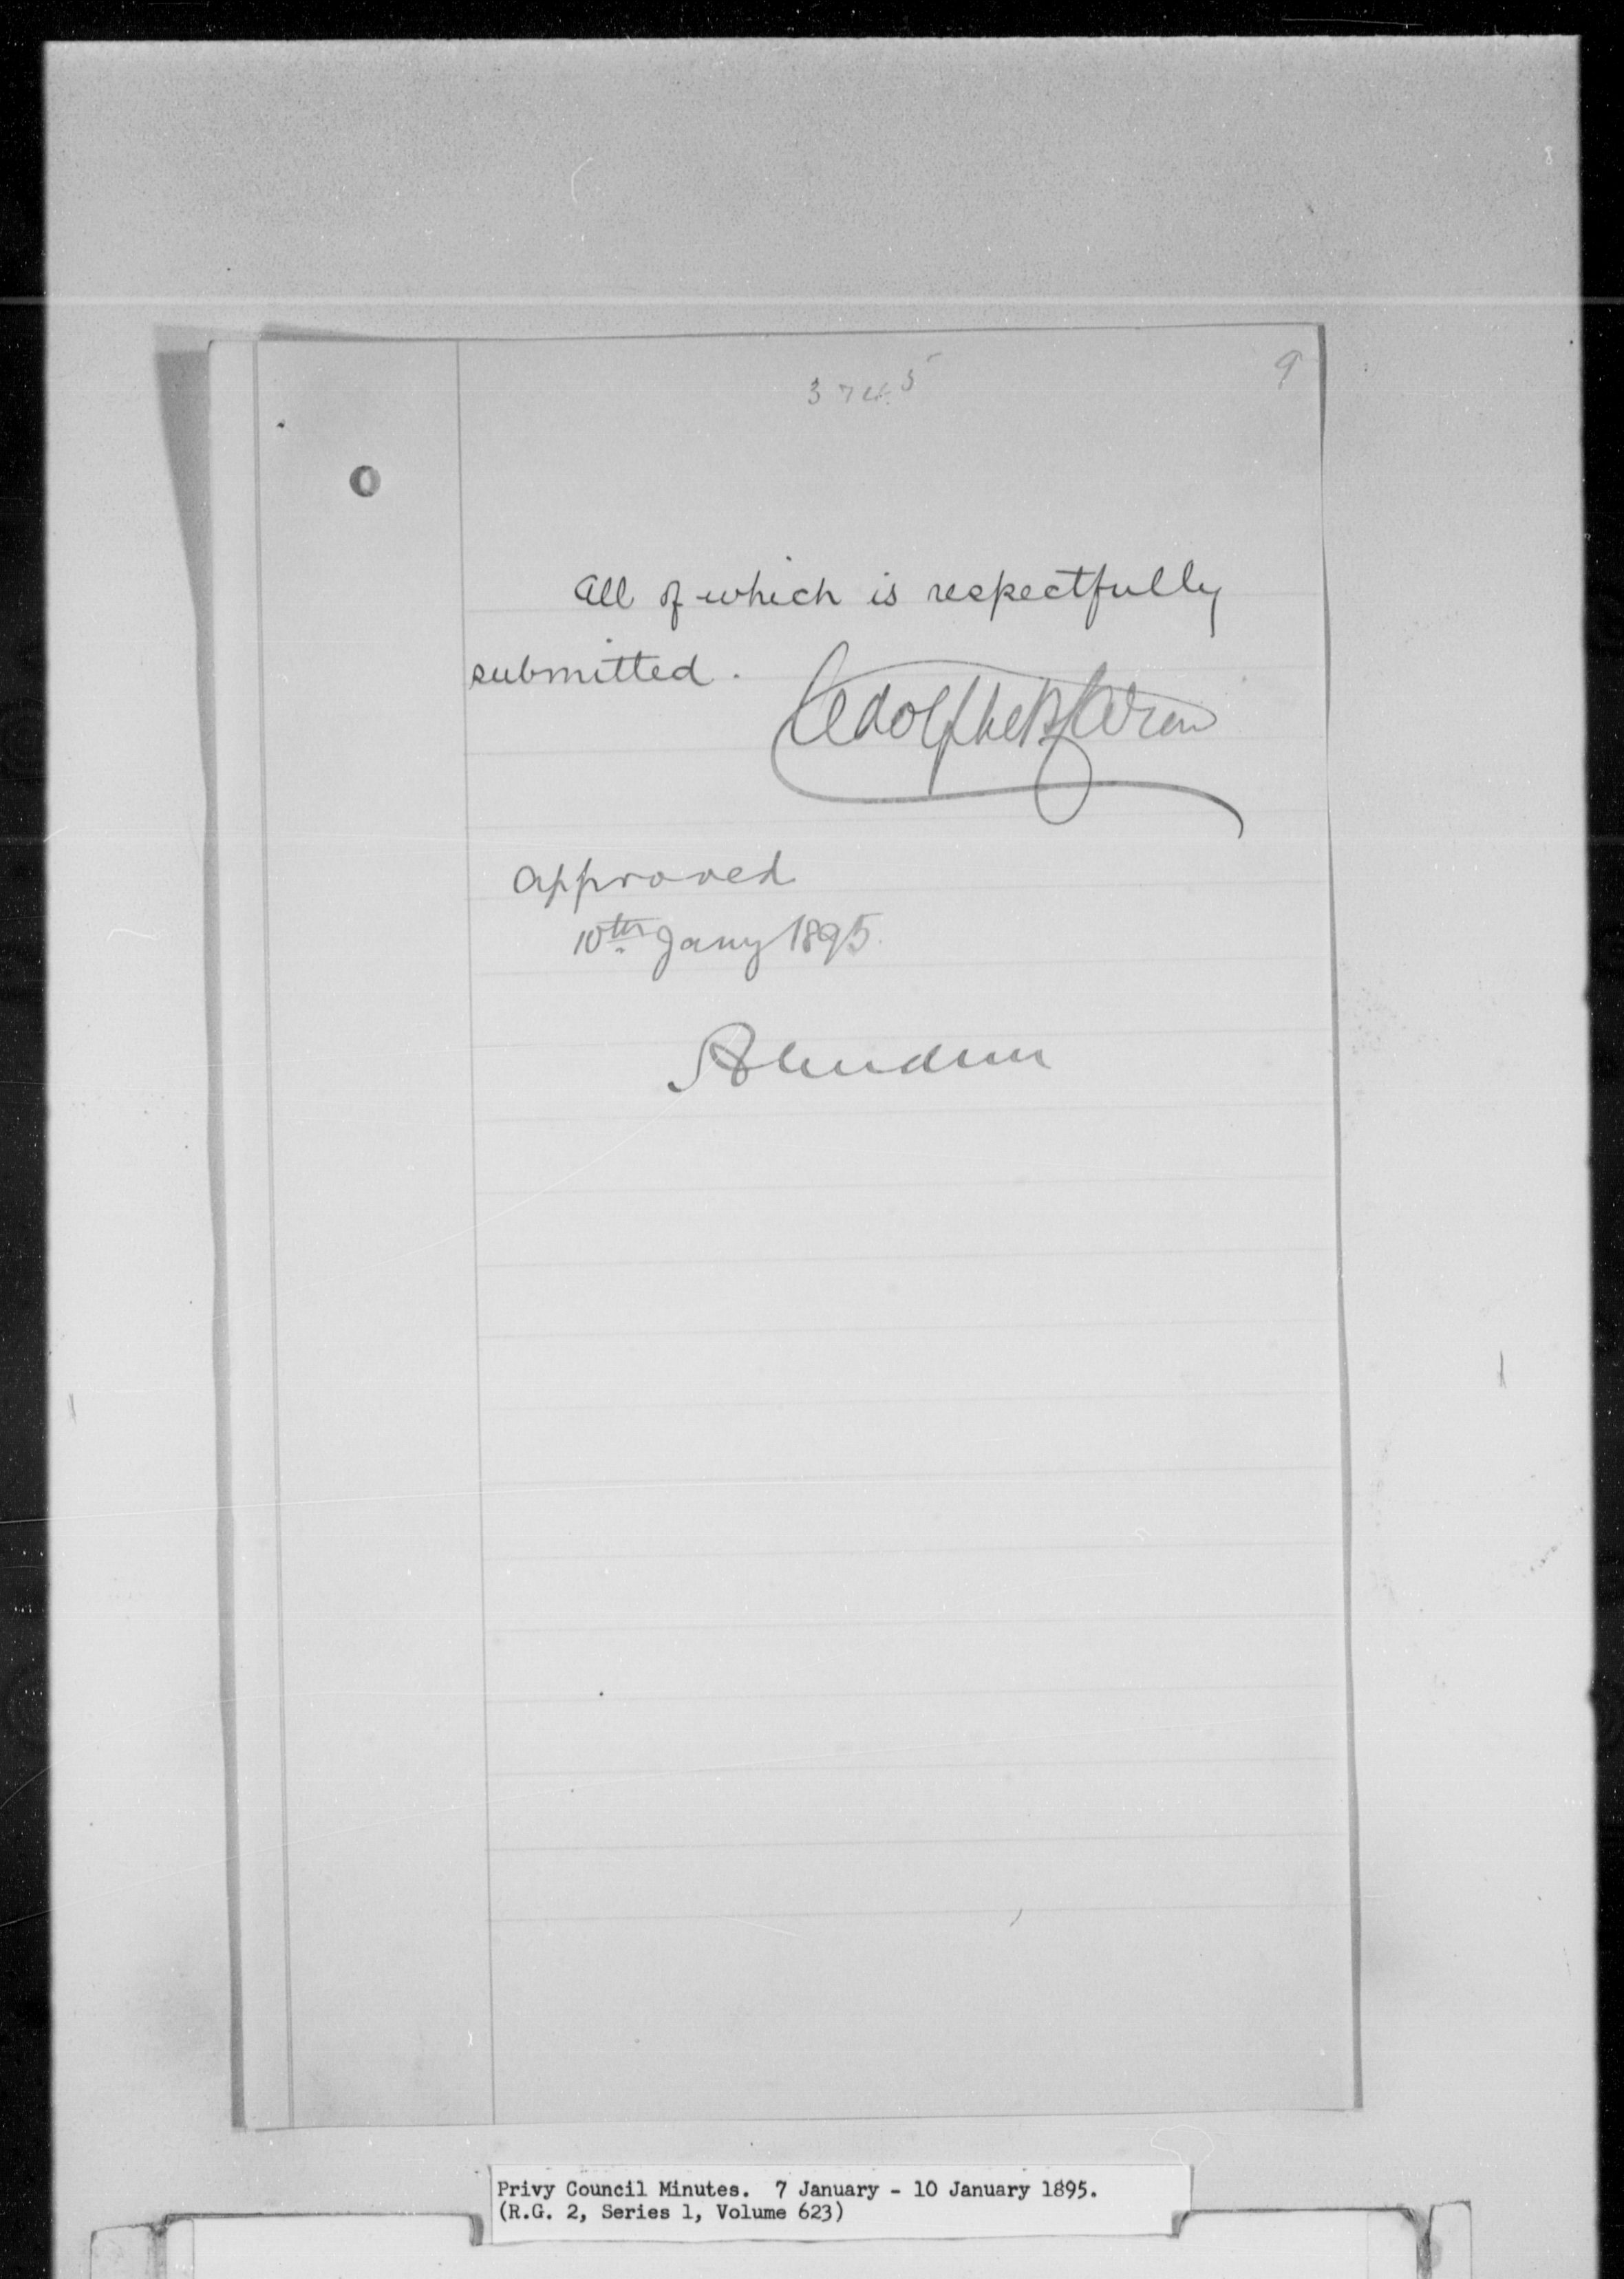 3745
9
All of which is respectfully
submitted.
Adolphe P. Caron
Approved
10th Jany 1895.
Aberdeen
Privy Council Minutes. 7 January - 10 January 1895.
(R.G. 2, Series 1, Volume 623)